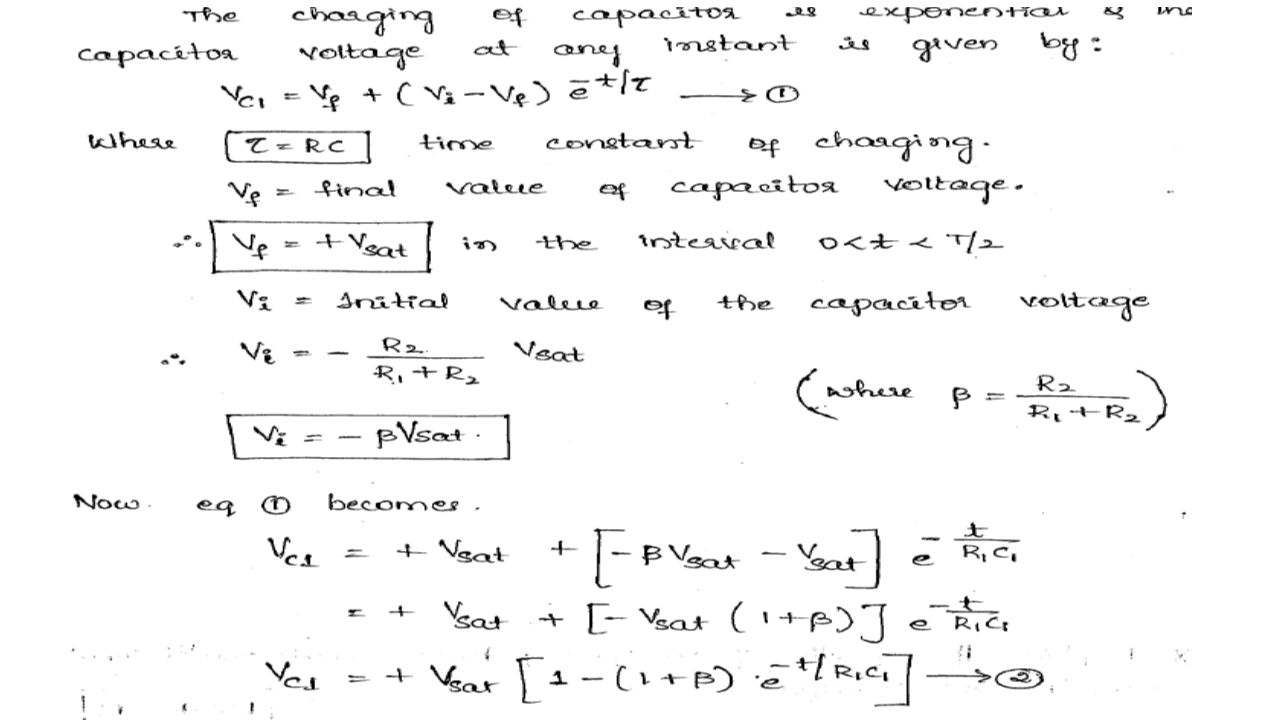 The charging of capacitor is exponential & the
capacitor voltage at any instant is given by:
Vc1 = Vf + (Vi - Vf) e^-t/τ ⟶ ①
Where τ = RC time constant of charging.
Vf = final value of capacitor voltage.
∴ Vf = +Vsat in the interval 0<t<T/2
Vi = Initial value of the capacitor voltage
∴ Vi = - R2/(R1+R2) Vsat
(where β = R2/(R1+R2))
Vi = - βVsat.
Now eq ① becomes.
Vc1 = + Vsat + [-βVsat - Vsat] e^-t/R1C1
= + Vsat + [-Vsat (1+β)] e^-t/R1C1
Vc1 = + Vsat [1-(1+β).e^-t/R1C1] ⟶ ②